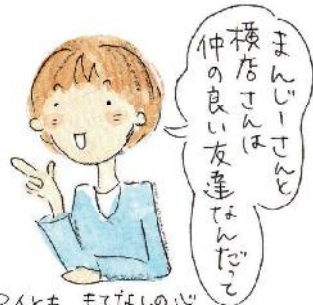 まんじーさんと
横店さんは
仲の良い友達なんだって
2人とも、もてなしの心